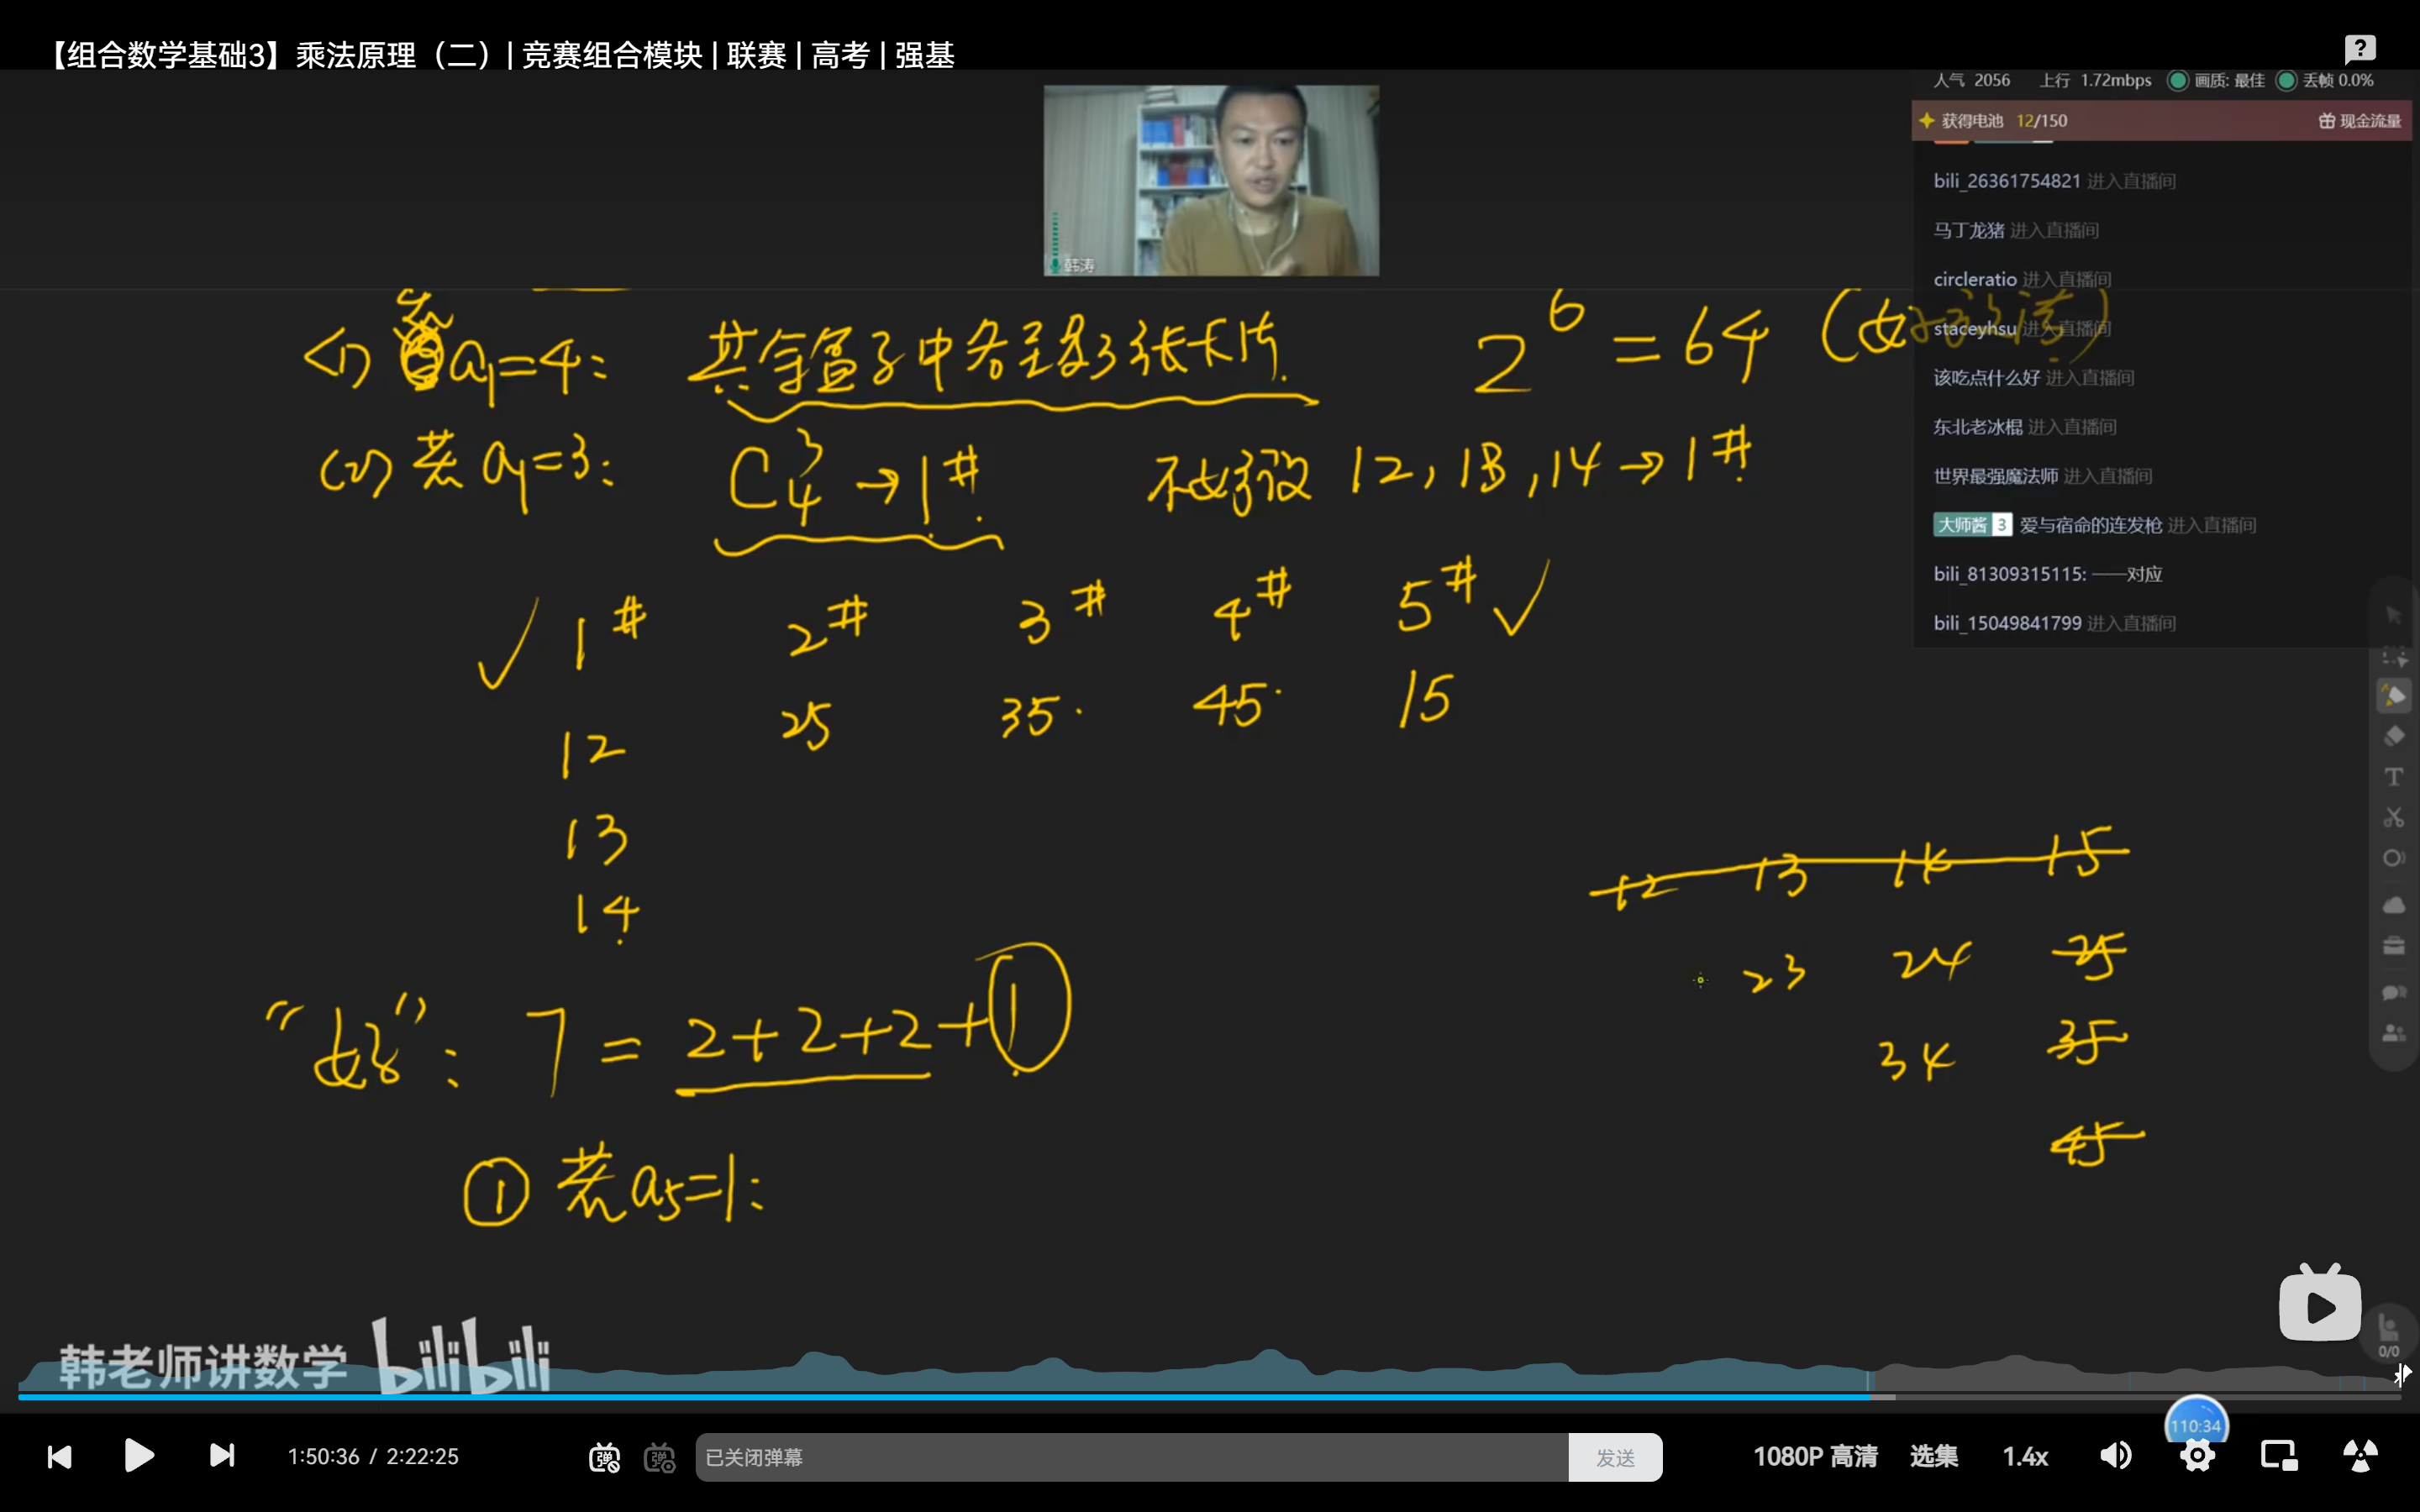 【组合数学基础3】乘法原理（二）| 竞赛组合模块 | 联赛 | 高考 | 强基
人气 2056 上行 1.72mbps 画质: 最佳 丢帧 0.0%
获得电池 12/150 现金流量
bili_26361754821 进入直播间
马丁龙猪 进入直播间
circleratio 进入直播间
staceyhsu 进入直播间
该吃点什么好 进入直播间
东北老冰棍 进入直播间
世界最强魔法师 进入直播间
大师酱 3 爱与宿命的连发枪 进入直播间
bili_81309315115: 一一对应
bili_15049841799 进入直播间
韩涛
<1> 若 a₁=4: 其余盒子中各至多3张卡片. 2⁶ = 64 (好的放法)
(2) 若 a₁=3: C₄³ → 1# 不妨设 12, 13, 14 → 1#
✓ 1# 2# 3# 4# 5# ✓
12 25 35 45 15
13
14
12 13 14 15
23 24 25
34 35
45
“好”: 7 = 2+2+2+1
① 若 a₅=1:
韩老师讲数学 bilibili
0/0
110:34
1:50:36 / 2:22:25 弹 弹 已关闭弹幕 发送 1080P 高清 选集 1.4x